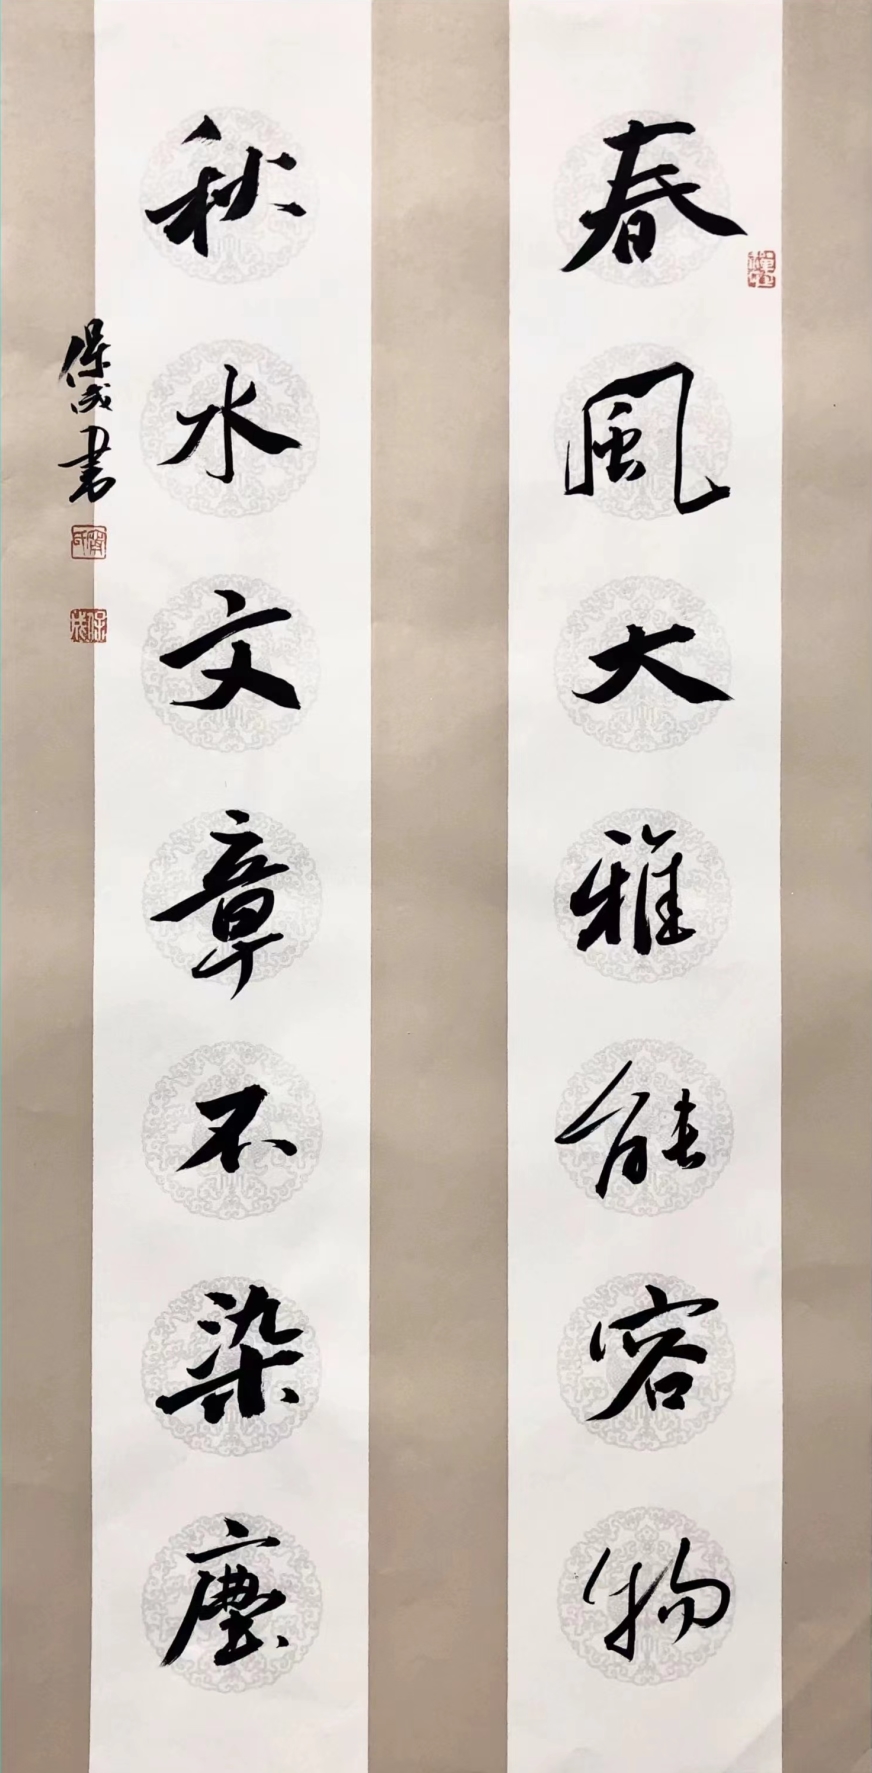 春風大雅能容物
秋水文章不染塵
保成書